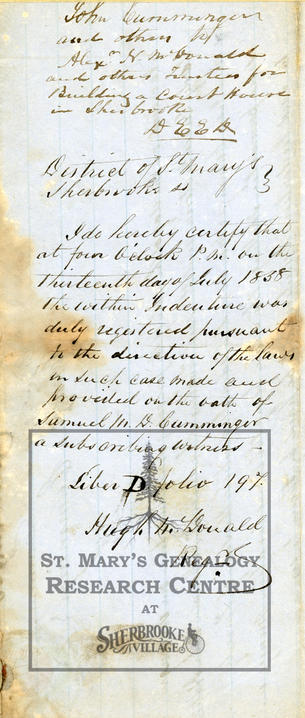 John Cumminger
and others to
Alexr. N. McDonald
and others Trustees for
Building a Court House
in Sherbrooke
DEED
District of St. Mary's
Sherbrooke ss
I do hereby certify that
at four o'clock P.M. on the
thirteenth day of July 1858
the within Indenture was
duly registered pursuant
to the direction of the laws
in such case made and
provided on the oath of
Samuel M. D. Cumminger
a subscribing witness -
Liber D folio 197.
Hugh McDonald
Regr.
ST. MARY'S GENEALOGY
RESEARCH CENTRE
AT
SHERBROOKE
VILLAGE